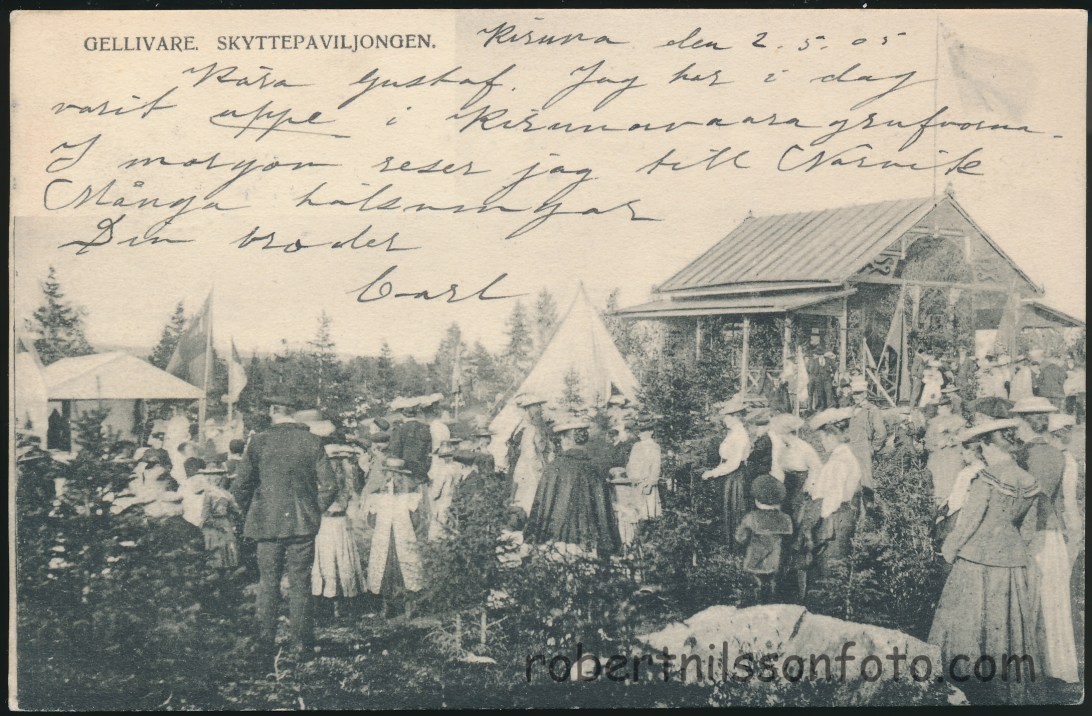 GELLIVARE. SKYTTEPAVILJONGEN.
Kiruna den 2.5.05
Kära Gustaf. Jag har i dag
varit uppe i Kirunavaara grufvorna.
I morgon reser jag till Narvik
Många hälsningar
Din broder
Carl
robertnilssonfoto.com